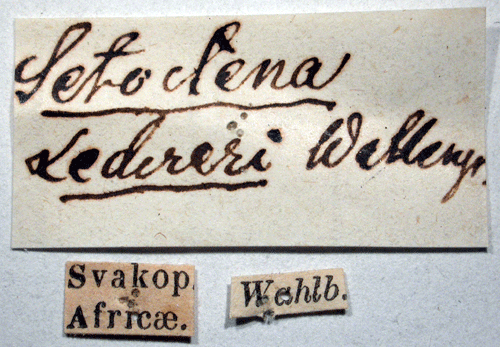 Setoctena
Ledereri Wallengr.
Svakop.
Africæ.
Wahlb.